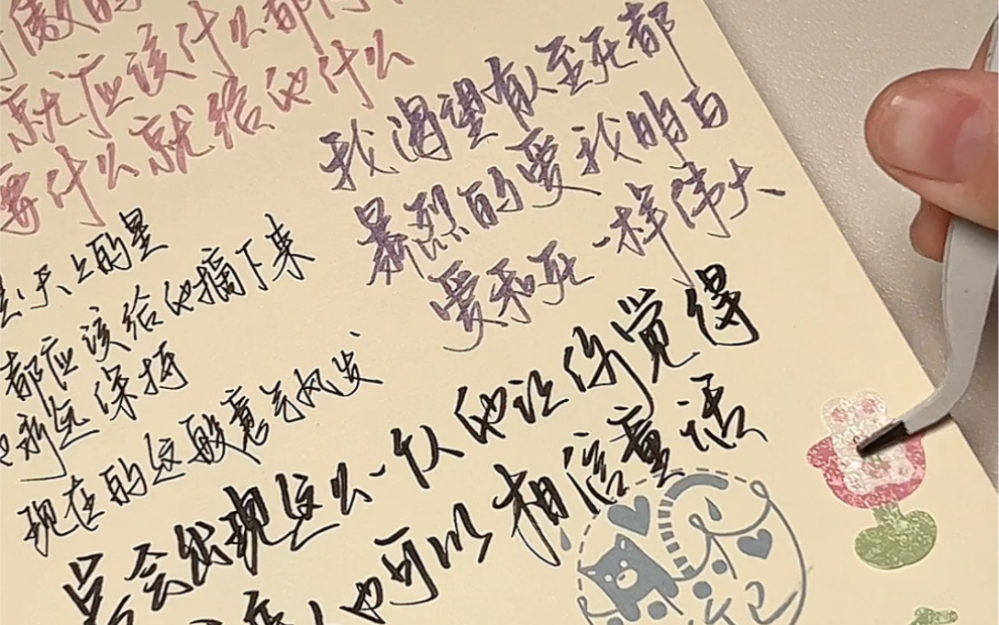 傲的
就应该什么都
要什么就给他什么
我渴望有人至死都
暴烈的爱我明白
爱和死一样伟大
天上的星
都应该给他摘下来
永远保持
现在的这般意气风发
总会出现这么一个人他让你觉得
人也可以相信童话